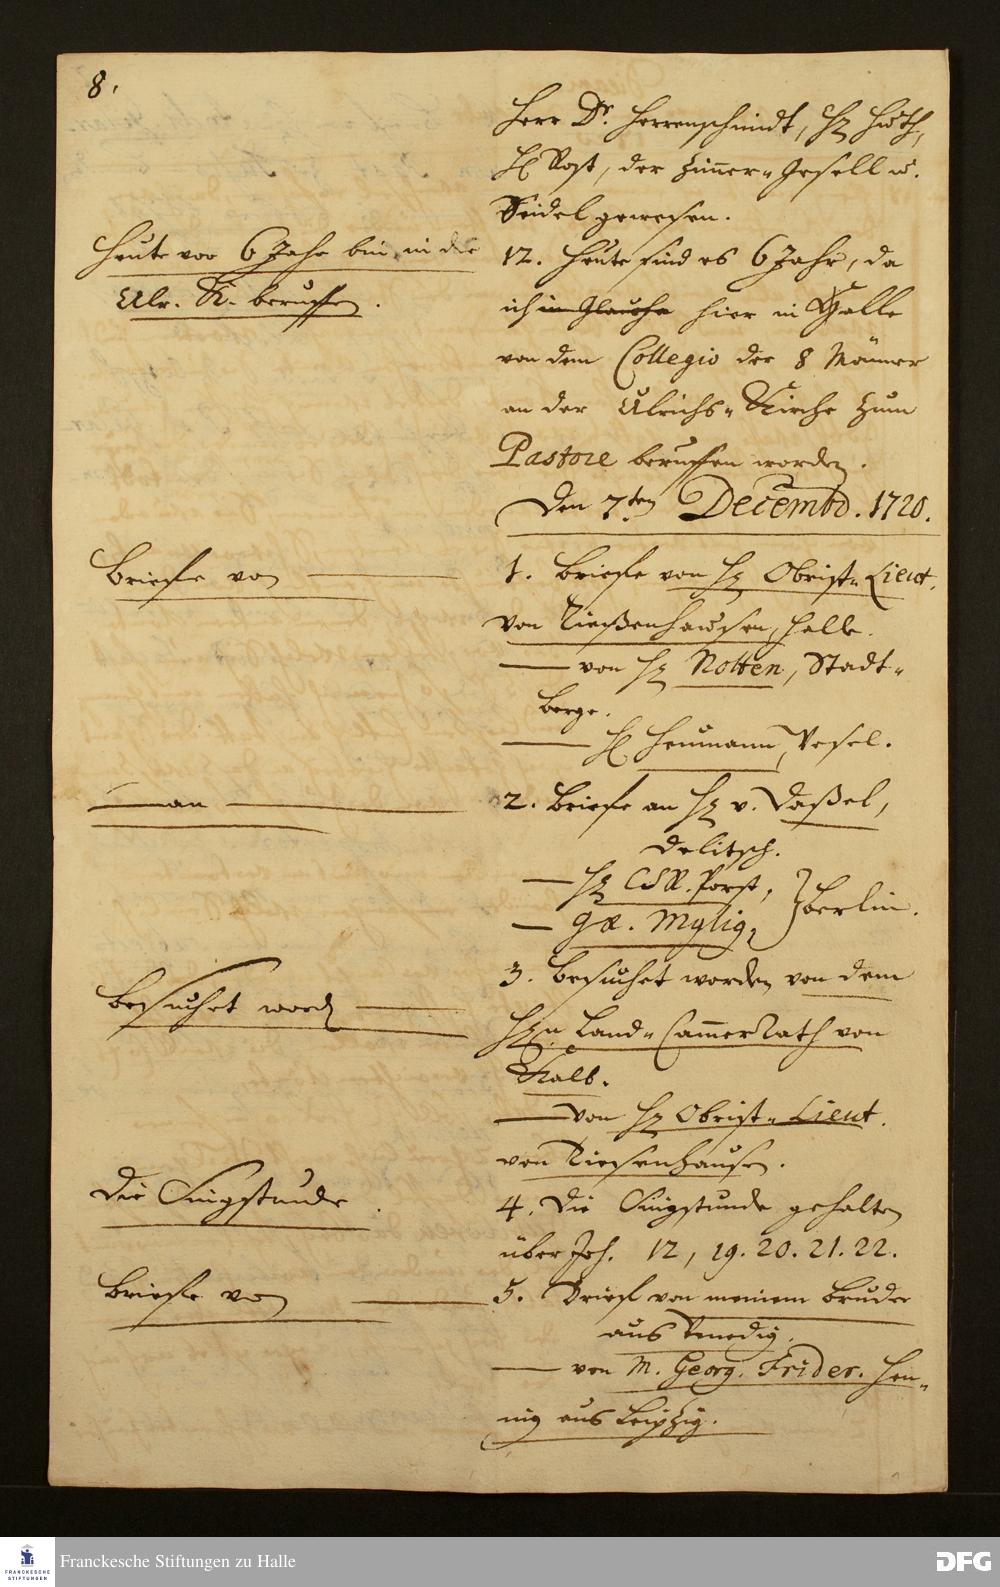 8.
Herr Dr. Herrenschmidt, H. Huth,
H. Rost, der Zimmer-Gesell u.
Seidel gewesen.
Heute vor 6 Jahr bin in die
Ulr. K. beruffen.
12. Heute sind es 6 Jahr, da
ich in Glaucha hier in Halle
von dem Collegio der 8 Männer
an der Ulrichs-Kirche zum
Pastore beruffen worden.
Den 7ten Decembr. 1720.
Briefe von
1. Briefe von H. Obrist-Lieut.
von Tießenhausen, Halle.
— von H. Notten, Stadt-
berge.
— H. Heumann, Vesel.
— an
2. Briefe an H. v. Daßel,
Delitsch.
— H. CSR. Porst,
— Mylig,
} Berlin.
Besuchet word.
3. Besuchet worden von dem
H.n Land-Cammer Rath von
Kalb.
— von H. Obrist-Lieut.
von Tiesenhausen.
Die Singstunde.
4. Die Singstunde gehalten
über Joh. 12, 19. 20. 21. 22.
Briefe von
5. Brief von meinem Bruder
aus Venedig.
— von M. Georg. Frider. Hen-
nig aus Leipzig.
Franckesche Stiftungen zu Halle
FRANCKESCHE
STIFTUNGEN
DFG